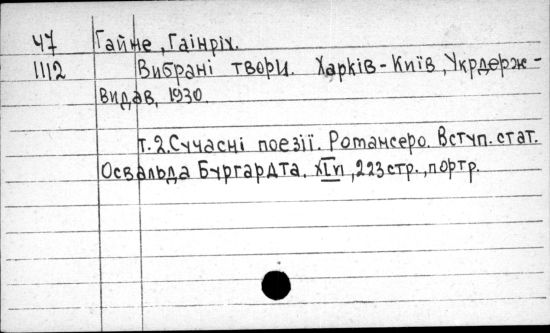 47 Гайне, Гаінріх.
1112 Вибрані твори. Харків-Київ, Укрдерж-
видав, 1930.
т.2. Сучасні поезії. Романсеро. Вступ. стат.
Освальда Бургардта. XIп, 223 стр., портр.